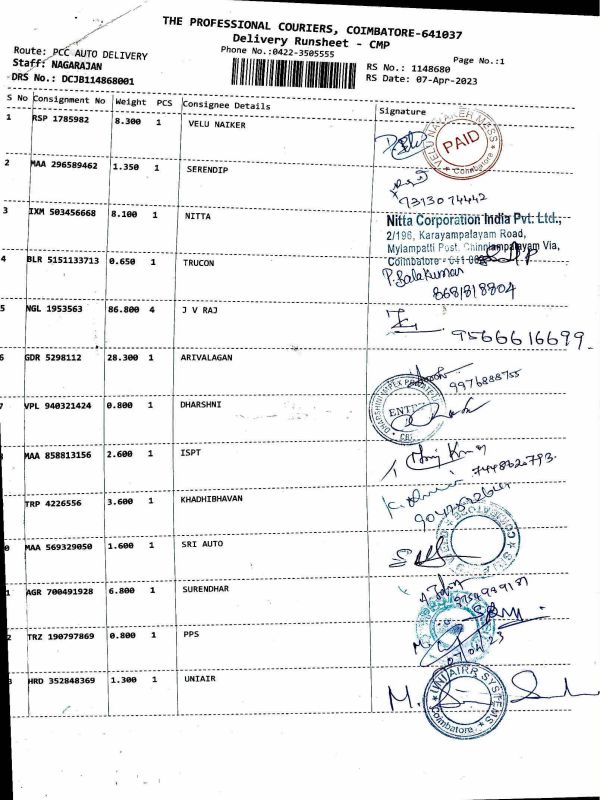 THE PROFESSIONAL COURIERS, COIMBATORE-641037
Delivery Runsheet - CMP
Phone No.:0422-3505555
Page No.:1
Route: PCC AUTO DELIVERY
Staff: NAGARAJAN
DRS No.: DCJB114868001
RS No.: 1148680
RS Date: 07-Apr-2023
S No Consignment No Weight PCS Consignee Details Signature
1 RSP 1785982 8.300 1 VELU NAIKER
PAID
Coimbatore
2 MAA 296589462 1.350 1 SERENDIP
7313074442
3 IXM 503456668 8.100 1 NITTA
Nitta Corporation India Pvt. Ltd.,
2/196, Karayampalayam Road,
Mylampatti Post, Chinniampalayam Via,
Coimbatore - 641 062
4 BLR 5151133713 0.650 1 TRUCON
P. Balakumar
8681818804
5 NGL 1953563 86.800 4 J V RAJ
9566616699
6 GDR 5298112 28.300 1 ARIVALAGAN
9976888755
7 VPL 940321424 0.800 1 DHARSHNI
MAA 858813156 2.600 1 ISPT
7448820793.
TRP 4226556 3.600 1 KHADHIBHAVAN
0 MAA 569329050 1.600 1 SRI AUTO
COIMBATORE
1 AGR 700491928 6.800 1 SURENDHAR
2 TRZ 190797869 0.800 1 PPS
HRD 352848369 1.300 1 UNIAIR
UNIAIRR SYSTEMS
Coimbatore